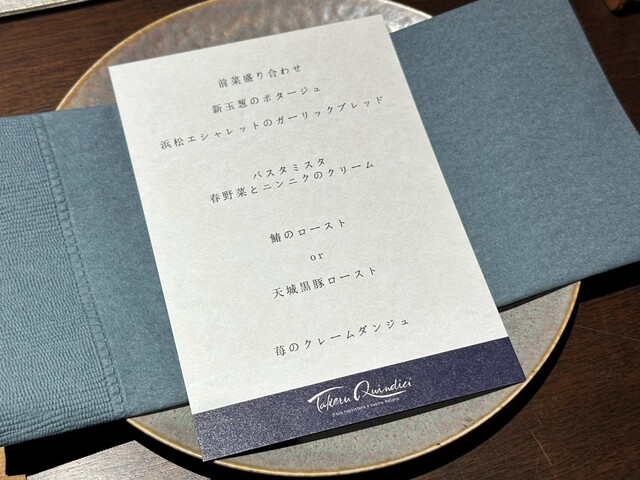 前菜盛り合わせ
新玉葱のポタージュ
浜松エシャレットのガーリックブレッド
パスタミスタ
春野菜とニンニクのクリーム
鰆のロースト
or
天城黒豚ロースト
苺のクレームダンジュ
Takeru Quindici